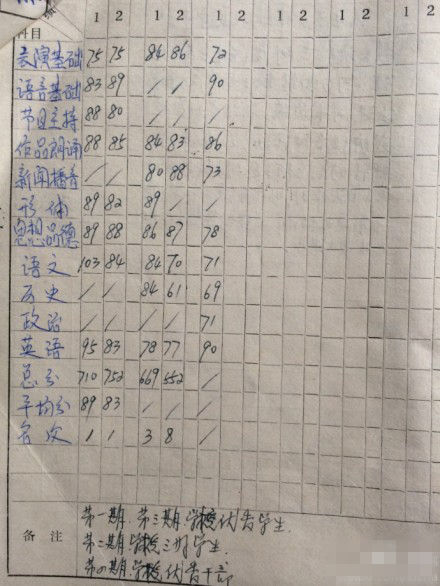 1 2 1 2 1 2 1 2 1 2 1 2
科目
表演基础 75 75 84 86 72
语音基础 83 89 / / 90
节目主持 88 80 / / /
作品朗诵 88 85 84 83 86
新闻播音 / / 80 88 73
形体 89 82 89 / /
思想品德 89 88 86 87 78
语文 103 84 84 70 71
历史 / / 84 61 69
政治 / / / / 71
英语 95 83 78 77 90
总分 710 752 669 552 /
平均分 89 83 / / /
名次 1 1 3 8 /
备注
第一期、第三期学校优秀学生.
第二期学校三好学生.
第四期学校优秀干部